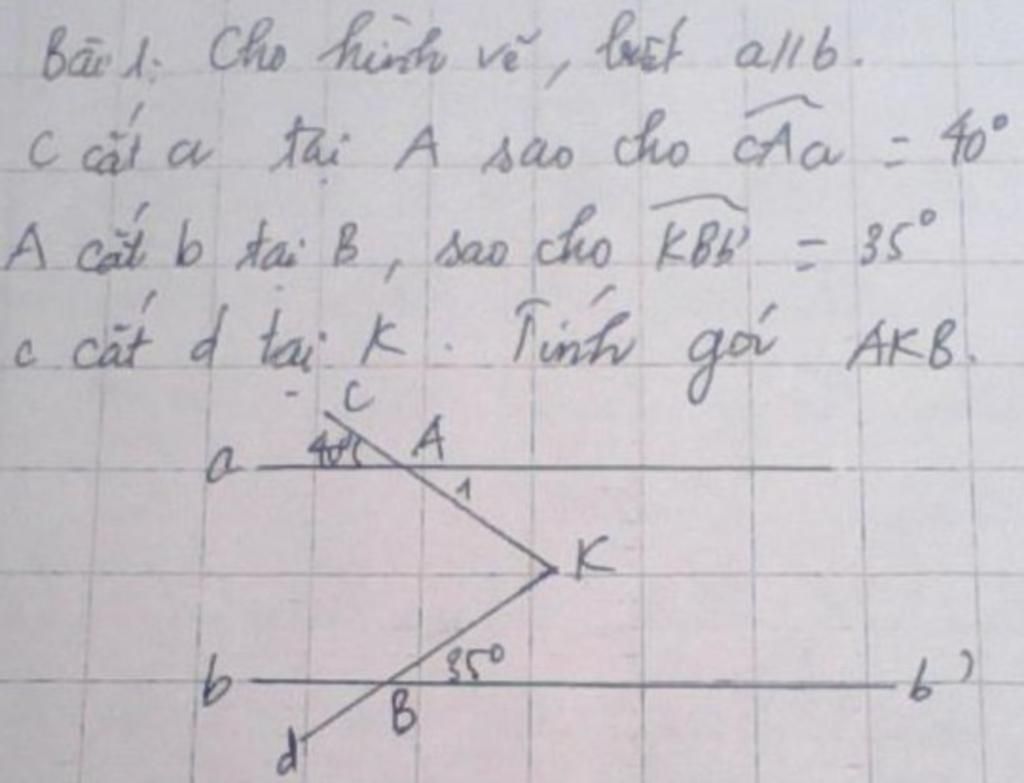 Bài 1: Cho hình vẽ, biết a//b.
C cắt a tại A sao cho cAa = 40°
A cắt b tại B, sao cho KBb' = 35°
c cắt d tại K. Tính gói AKB.
C
40° A
a
1
K
35°
b b'
B
d